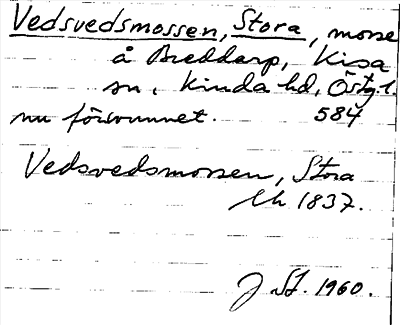 Vedsvedsmossen, Stora, mosse
å Breddarp, Kisa
sn, Kinda hd, Östg. l.
nu försvunnet. 584
Vedsvedsmossen, Stora
Lh 1837.
J St. 1960.